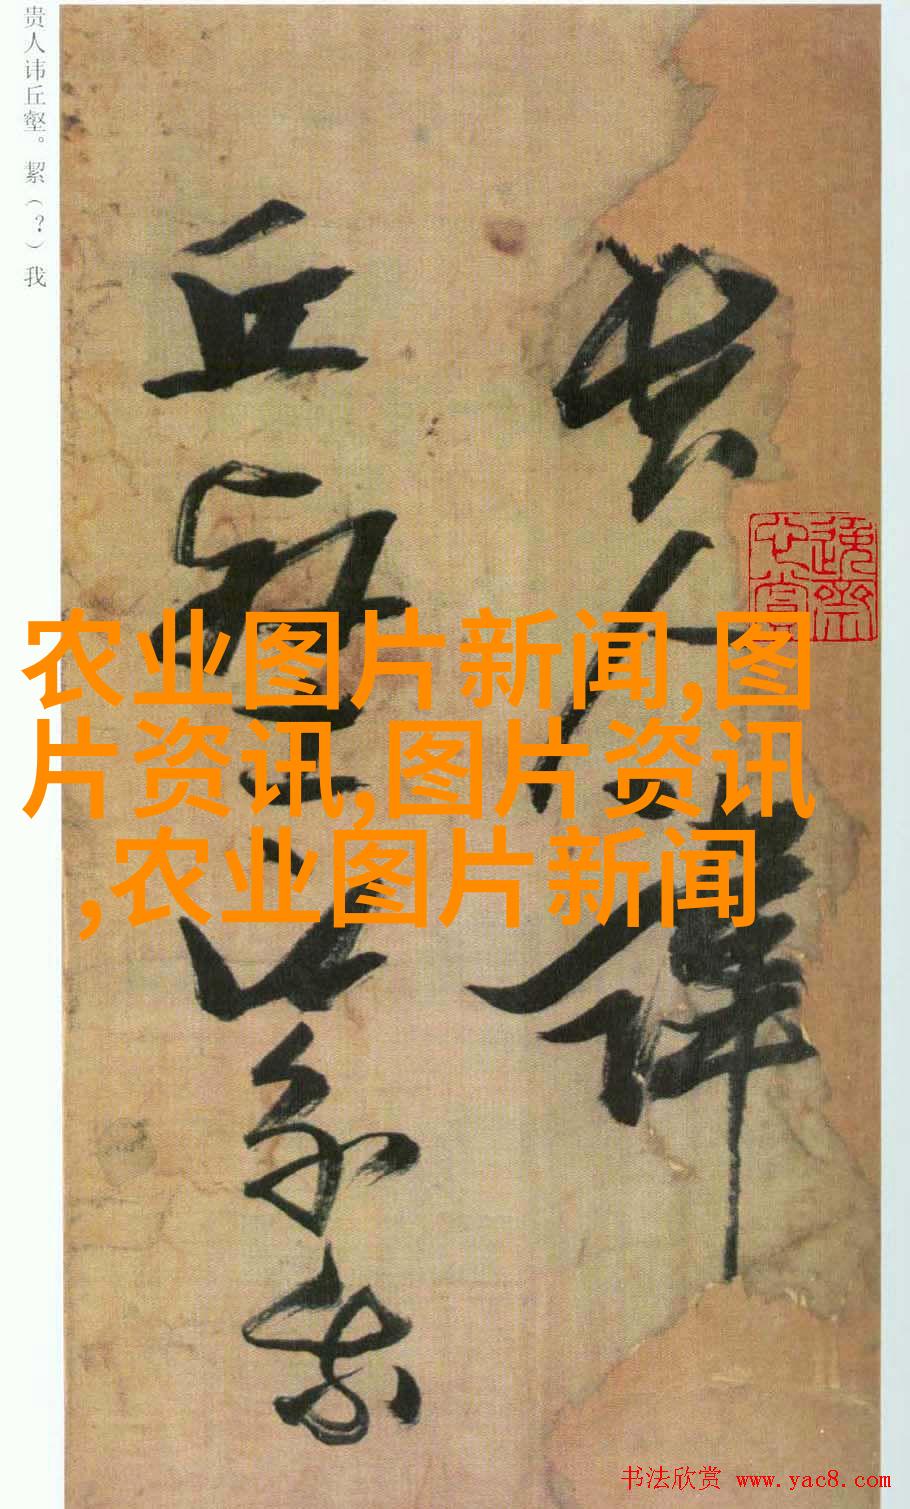 贵人讳丘壑。絜（？）我
贵人讳
丘壑絜我
农业图片新闻,图
片资讯,图片资讯
,农业图片新闻
书法欣赏 www.yac8.com